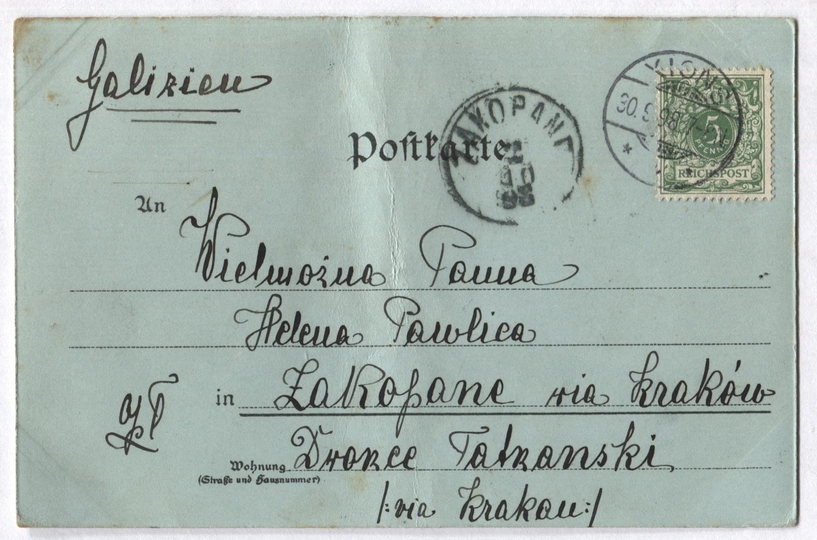 Galizien
Postkarte
XIONS
30.9.98.
5
REICHSPOST
ZAKOPANE
An
Wielmożna Panna
Helena Pawlica
in Zakopane via Kraków
Dworzec Tatrzanski
Wohnung
(Straße und Hausnummer)
/:via Krakau:/